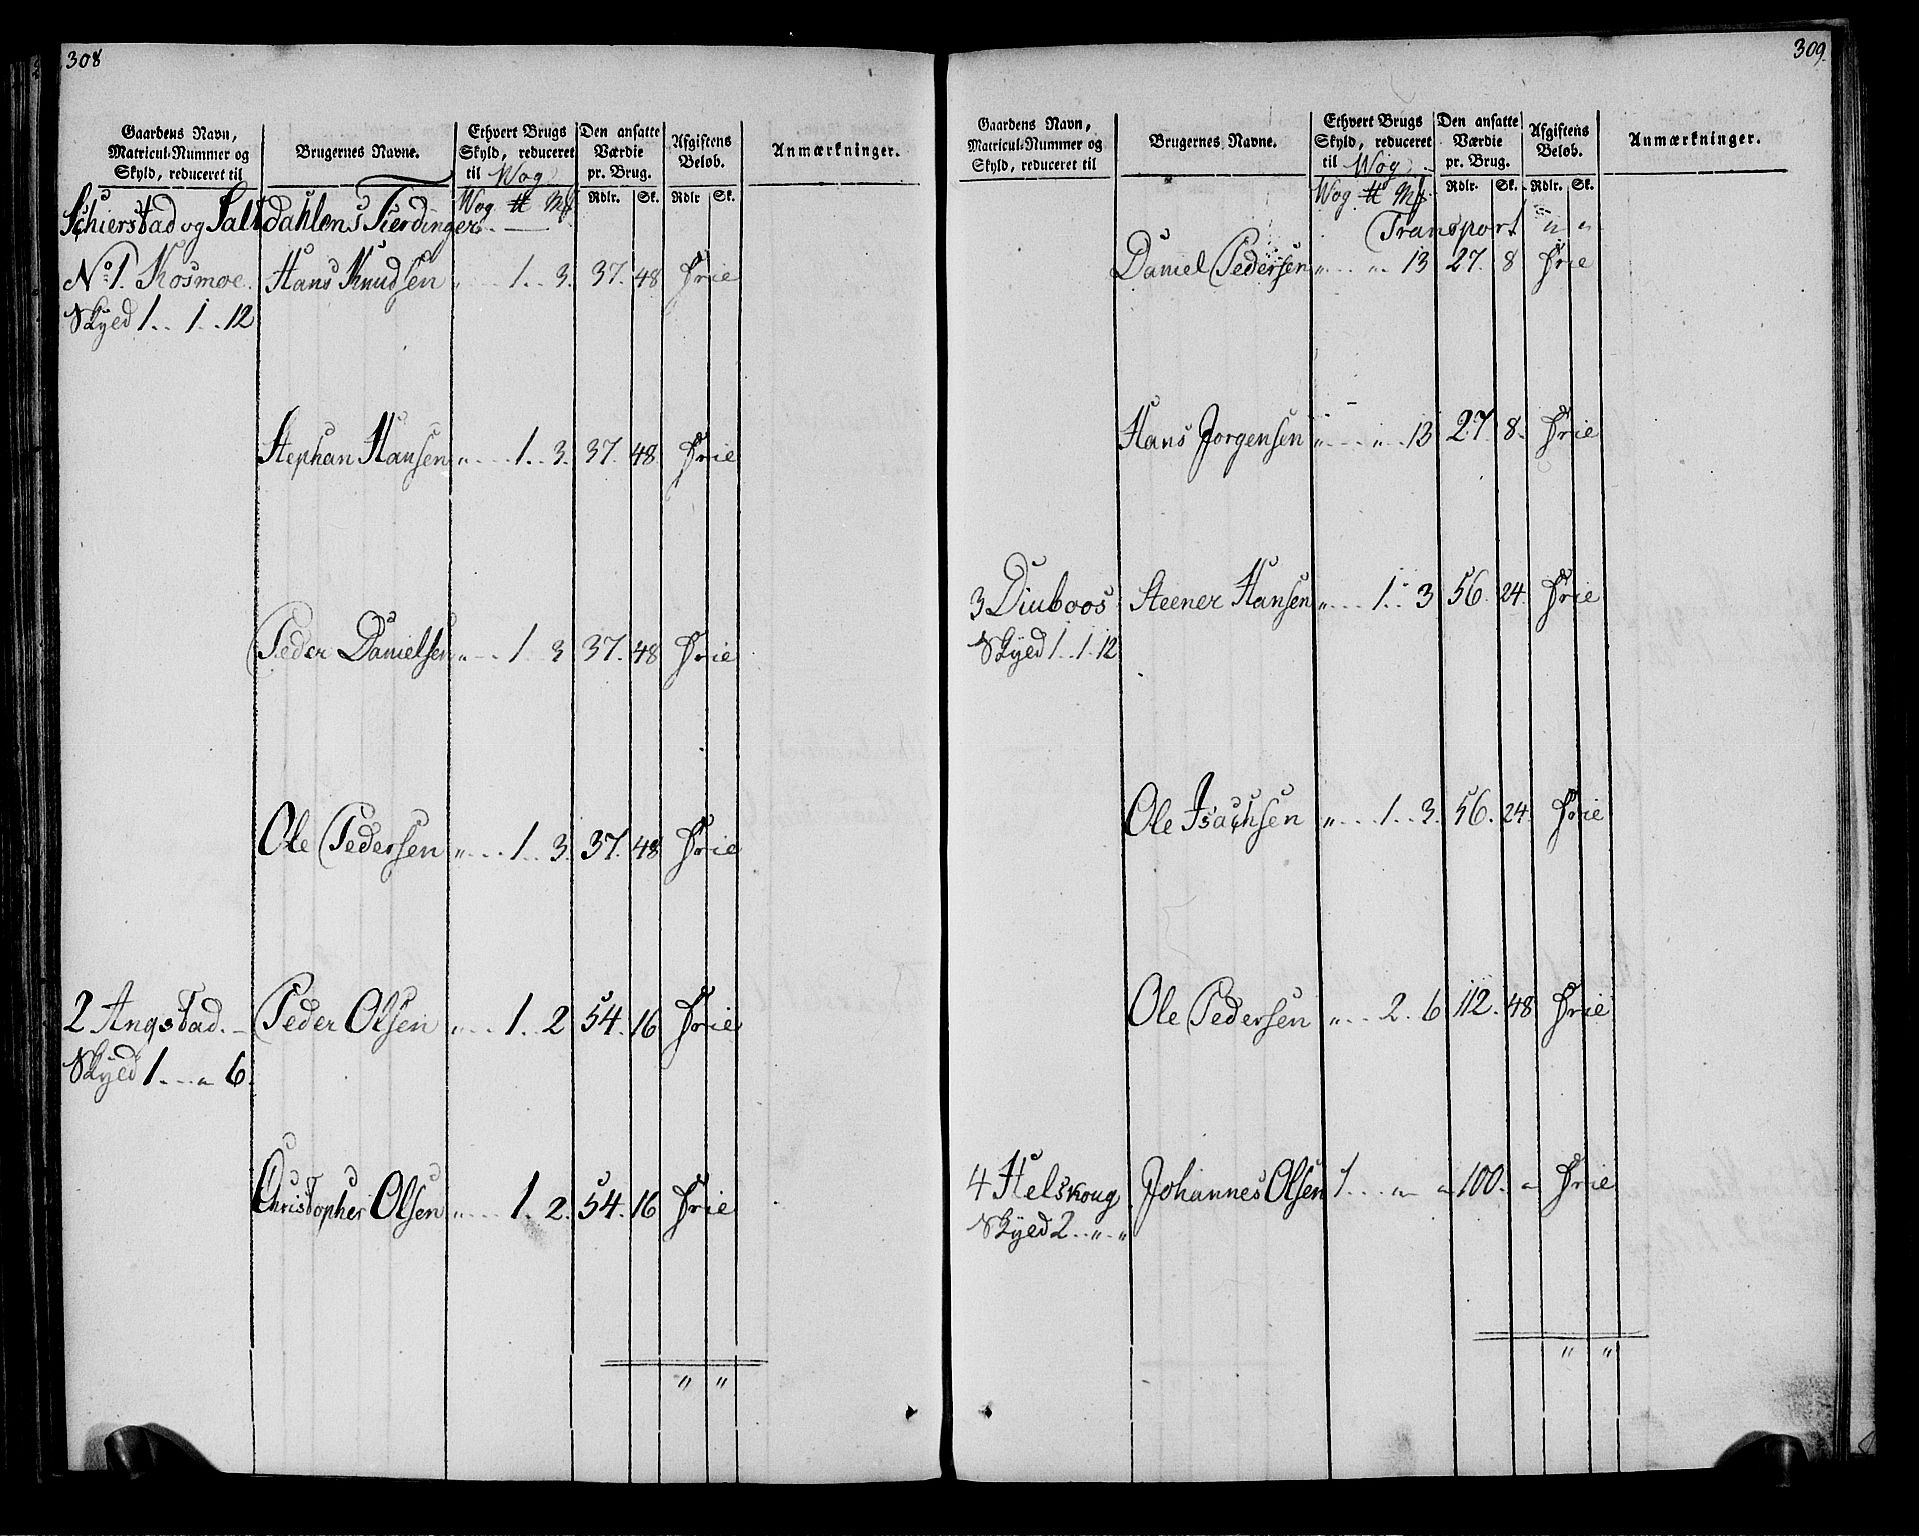 308
Gaardens Navn, Matricul-Nummer og Skyld, reduceret til
Brugernes Navne.
Ethvert Brugs Skyld, reduceret til Wog
Den ansatte Værdie pr. Brug.
Afgiftens Beløb.
Anmærkninger.
Wog ℔ Mk Rdlr. Sk. Rdlr Sk.
Schierstad og Saltdahlens Fierdinger
No 1. Kosmoe. Hans Knudsen " 1. 3. 37. 48 Frie
Skyld 1 .. 1 .. 12
Stephan Hansen " 1 .. 3. 37. 48 Frie
Peder Danielsen " 1 3 37. 48 Frie
Ole Pedersen " 1 .. 3. 37. 48 Frie
2 Angstad. Peder Olsen " 1. 2 54. 16 Frie
Skyld 1 " 6.
Christopher Olsen " 1. 2. 54. 16 Frie
" "
309.
Gaardens Navn, Matricul-Nummer og Skyld, reduceret til
Brugernes Navne.
Ethvert Brugs Skyld, reduceret til Wog
Den ansatte Værdie pr. Brug.
Afgiftens Beløb.
Anmærkninger.
Wog ℔ Mk Rdlr. Sk. Rdlr. Sk.
Transport " "
Daniel Pedersen " " 13 27. 8 Frie
Hans Jorgensen " " 13 27. 8. Frie
3 Diuboos Steener Hansen " 1 .. 3 56. 24. Frie
Skyld 1 .. 1. 12
Ole Isachsen " 1 .. 3. 56. 24. Frie
Ole Pedersen " 2. 6 112. 48 Frie
4 Helskoug Johannes Olsen 1 " " 100. " Frie
Skyld 2 .. " "
" "